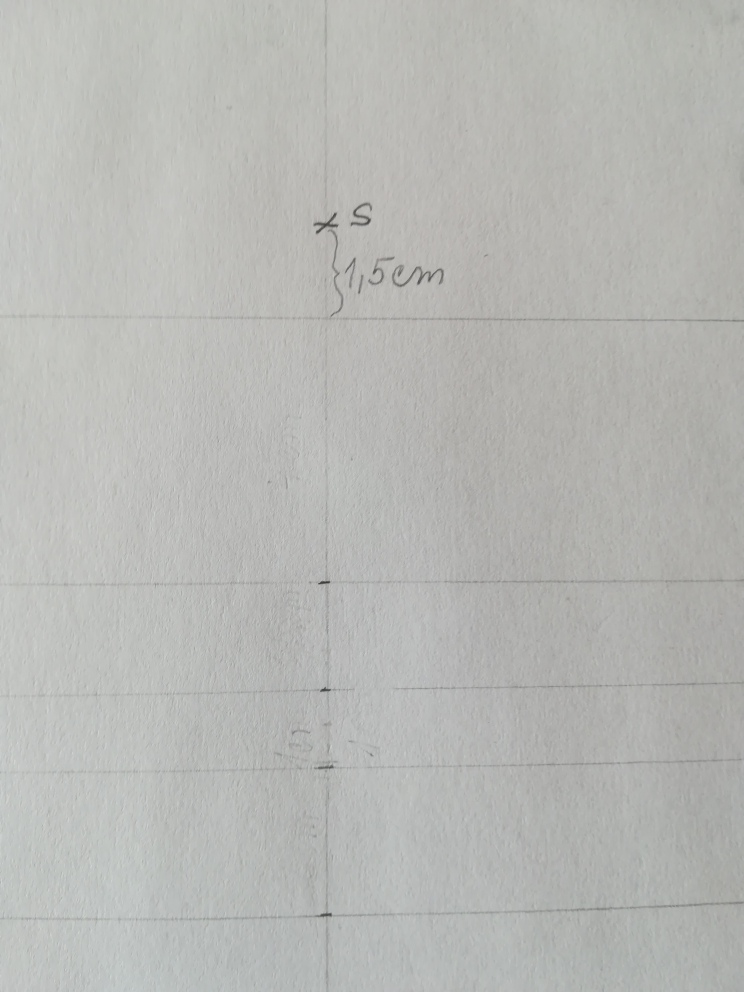 S
1,5cm